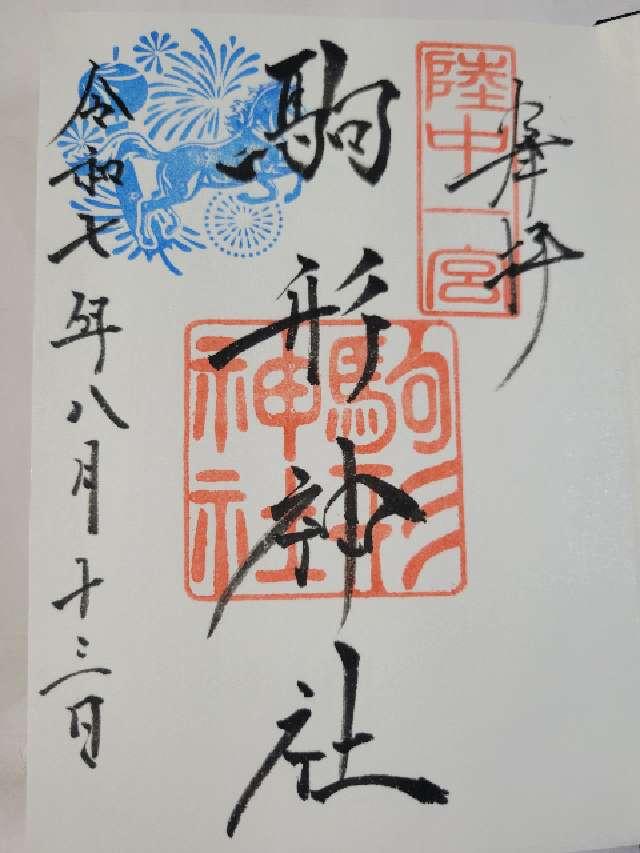 奉拝
陸中一宮
駒形神社
駒形神社
令和七年八月十三日